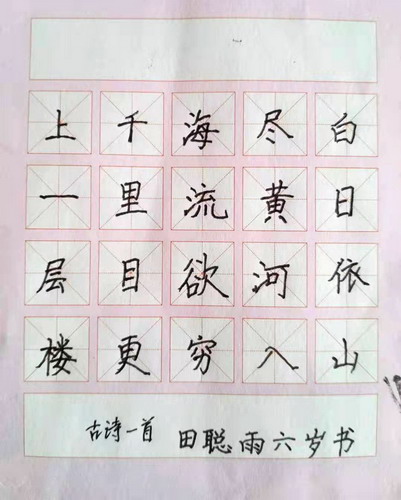 白日依山
尽黄河入
海流欲穷
千里目更
上一层楼
古诗一首 田聪雨六岁书